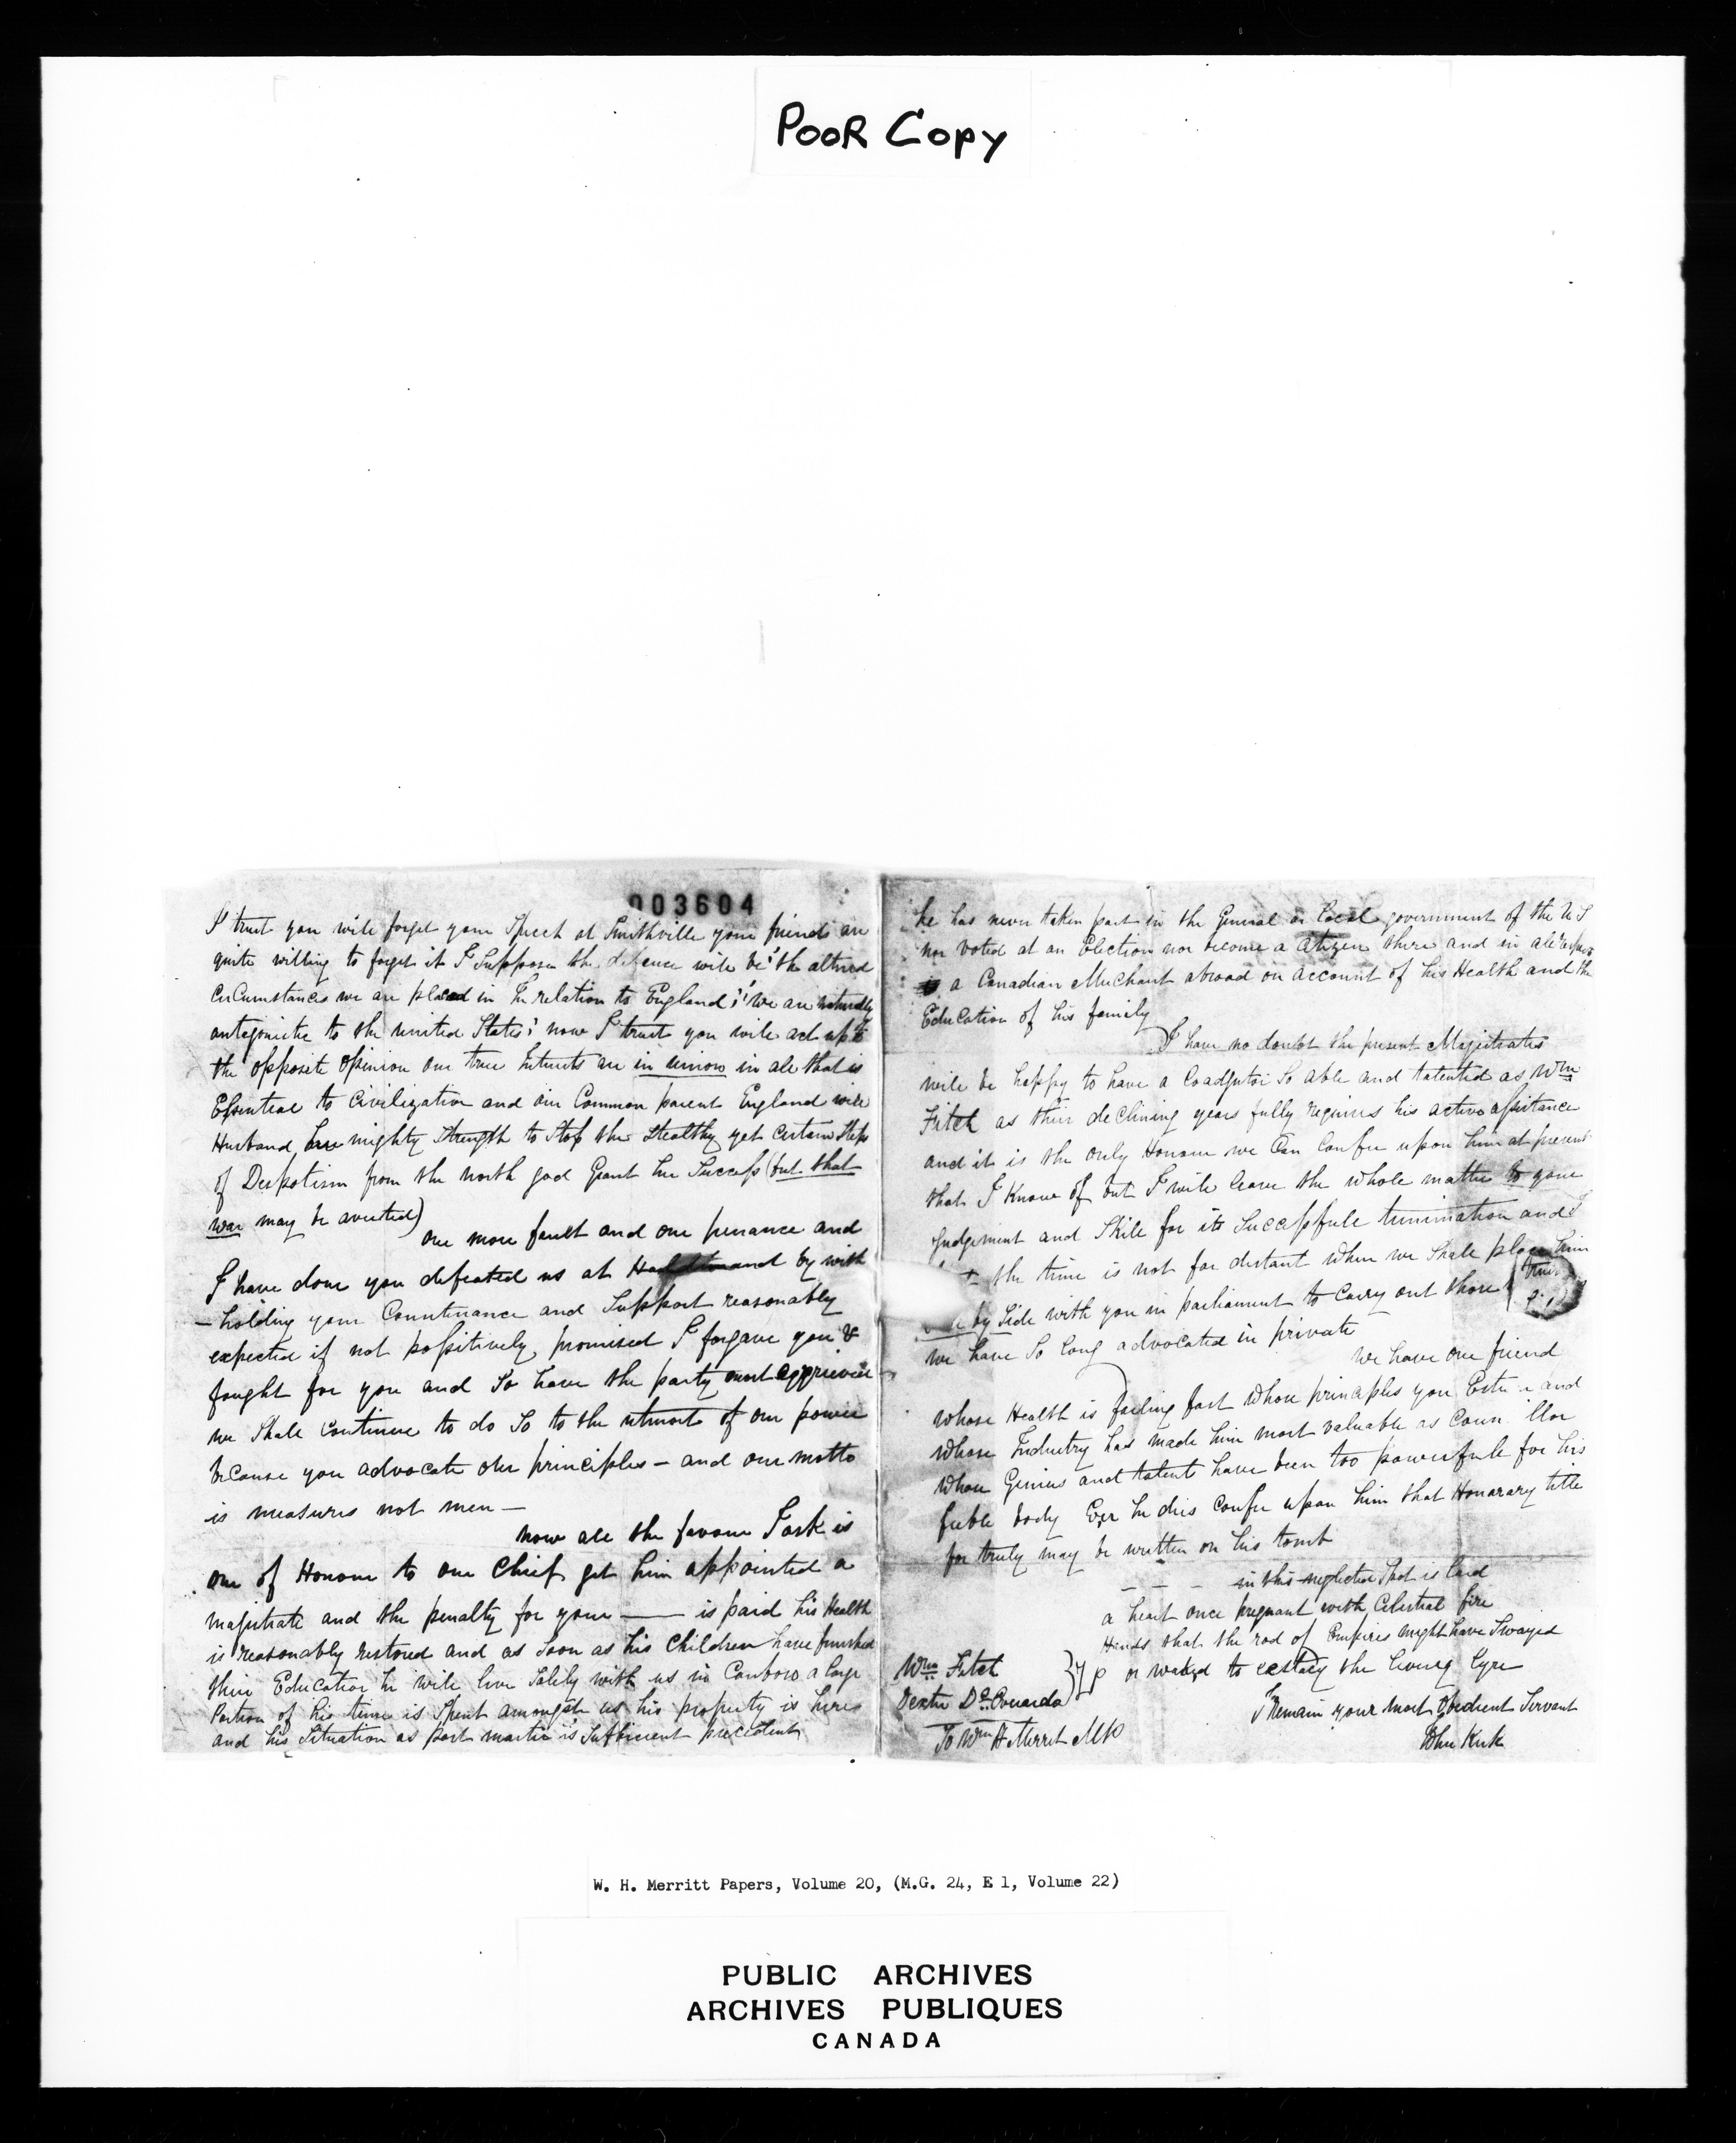 POOR COPY
003604
I trust you will forget your Speech at Smithville your friends are
quite willing to forget it I Suppose the defence will be "the altered
Circumstances we are placed in In relation to England;" "we are naturally
antagonistic to the united States" now I trust you will act up to
the opposite opinion our true Interests are in union in all that is
Essential to Civilization and our Common parent England will
Husband her mighty Strength to Stop the Stealthy yet Certain Steps
of Despotism from the north god Grant her Success (but that
war may be averted)
one more fault and one penance and
I have done you defeated us at and by with
-holding your Countenance and Support reasonably
expected if not possitively promised I forgave you &
fought for you and So have the party most aggrieved
we Shall Continue to do So to the utmost of our power
because you advocate our principles – and our motto
is measures not men —
now all the favour I ask is
one of Honour to our Chief get him appointed a
magistrate and the penalty for your —— is paid his Health
is reasonably restored and as Soon as his Children have finished
their Education he will live Solely with us in Canboro a large
Portion of his time is Spent amongst us his property is here
and his Situation as post master is Sufficient precedent
he has never taken part in the General or Local government of the U S
nor voted at an Election nor become a Citizen there and in all respects
is a Canadian Merchant abroad on account of his Health and the
Education of his family
I have no doubt the present Magistrates
will be happy to have a Coadjutor So able and talented as Wm
Fitch as their declining years fully requires his active assistance
and it is the only Honour we Can Confer upon him at present
that I Know of but I will leave the whole matter to your
Judgement and Skill for its Successfull termination and I
the time is not far distant when we Shall place him
by Side with you in parliament to Carry out those
we have So long advocated in private
We have one friend
whose Health is failing fast whose principles you Esteem and
whose Industry has made him most valuable as Councillor
whose Genius and talents have been too powerfull for his
feeble body Eer he dies Confer upon him that Honarary title
for truly may be written on his tomb
– – – in this neglected Spot is laid
a heart once pregnant with Celestial fire
Hands that the rod of Empires might have Swayed
or waked to ecstacy the living lyre
Wm Fitch
Dexter D. Everardo
} J P
I Remain your most Obedient Servant
John Kirk
To Wm H Merrit MP
W. H. Merritt Papers, Volume 20, (M.G. 24, E 1, Volume 22)
PUBLIC ARCHIVES
ARCHIVES PUBLIQUES
CANADA